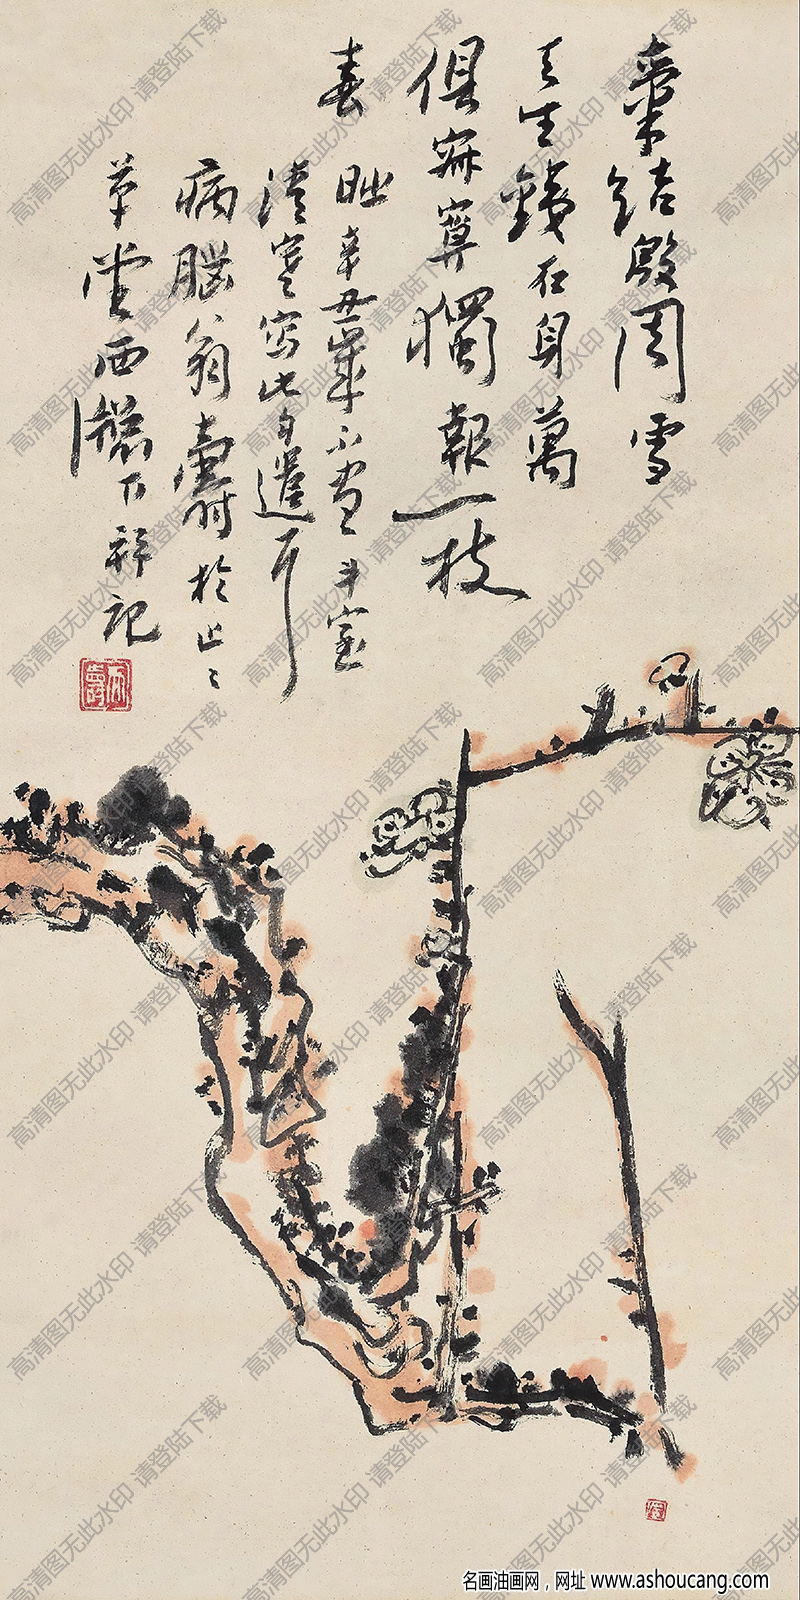 結殷周雪
天生鐵石身萬
俱寂寞獨報一枝
春
辛丑歲不盡斗室
寒寫此自遣耳
病腦翁壽時於止止
草堂西窗下并記
高清图无此水印 请登陆下载
名画油画网，网址 www.ashoucang.com